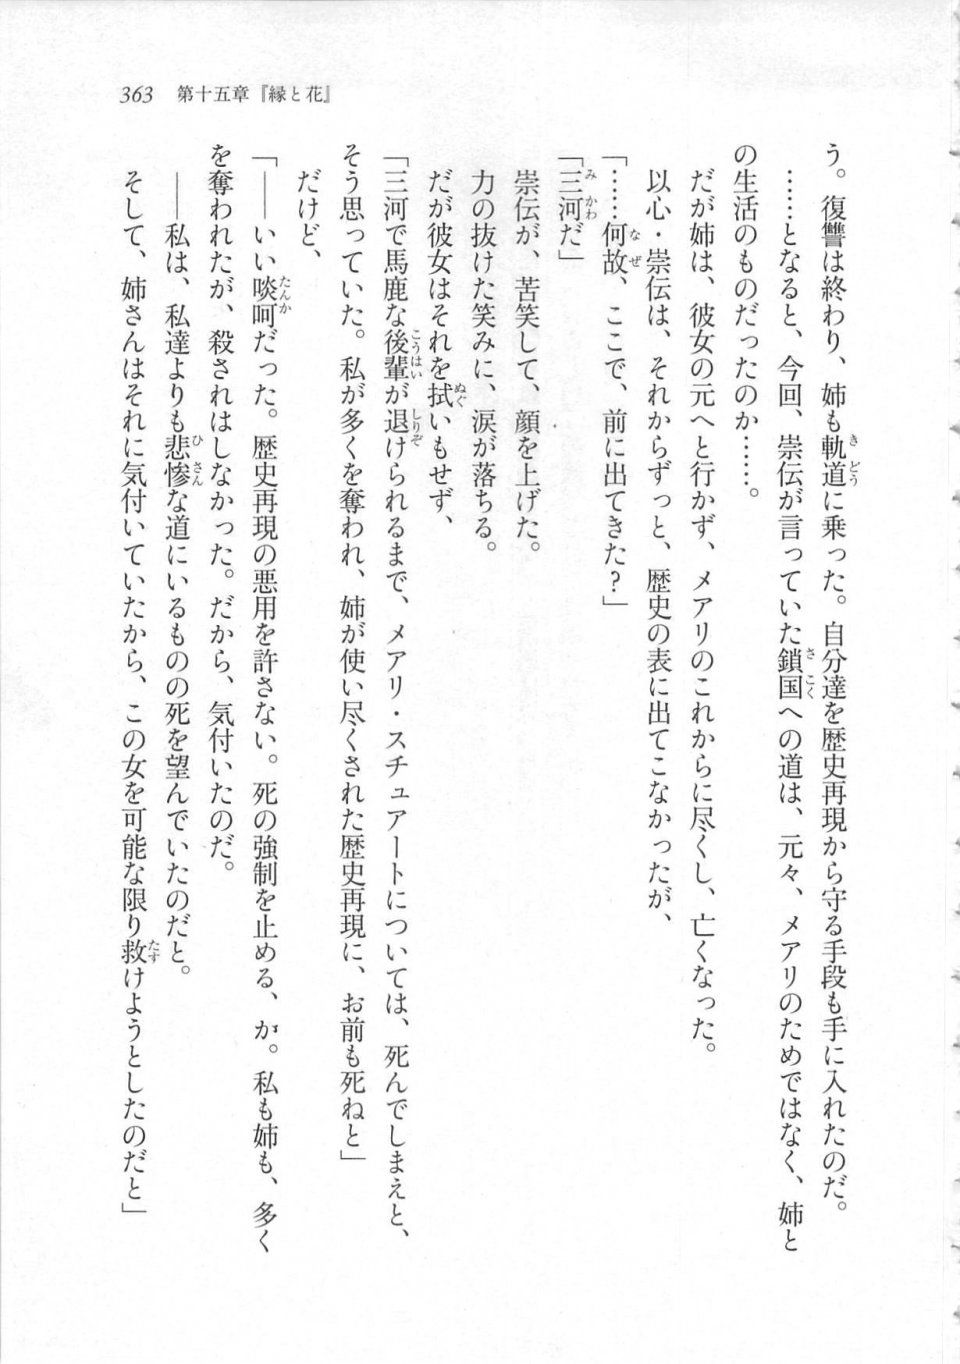 363　第十五章『縁と花』
う。復讐は終わり、姉も軌道に乗った。自分達を歴史再現から守る手段も手に入れたのだ。
……となると、今回、崇伝が言っていた鎖国への道は、元々、メアリのためではなく、姉と
の生活のものだったのか……。
だが姉は、彼女の元へと行かず、メアリのこれからに尽くし、亡くなった。
以心・崇伝は、それからずっと、歴史の表に出てこなかったが、
「……何故、ここで、前に出てきた？」
「三河だ」
崇伝が、苦笑して、顔を上げた。
力の抜けた笑みに、涙が落ちる。
だが彼女はそれを拭いもせず、
「三河で馬鹿な後輩が退けられるまで、メアリ・スチュアートについては、死んでしまえと、
そう思っていた。私が多くを奪われ、姉が使い尽くされた歴史再現に、お前も死ねと」
だけど、
「――いい啖呵だった。歴史再現の悪用を許さない。死の強制を止める、か。私も姉も、多く
を奪われたが、殺されはしなかった。だから、気付いたのだ。
――私は、私達よりも悲惨な道にいるものの死を望んでいたのだと。
そして、姉さんはそれに気付いていたから、この女を可能な限り救けようとしたのだと」